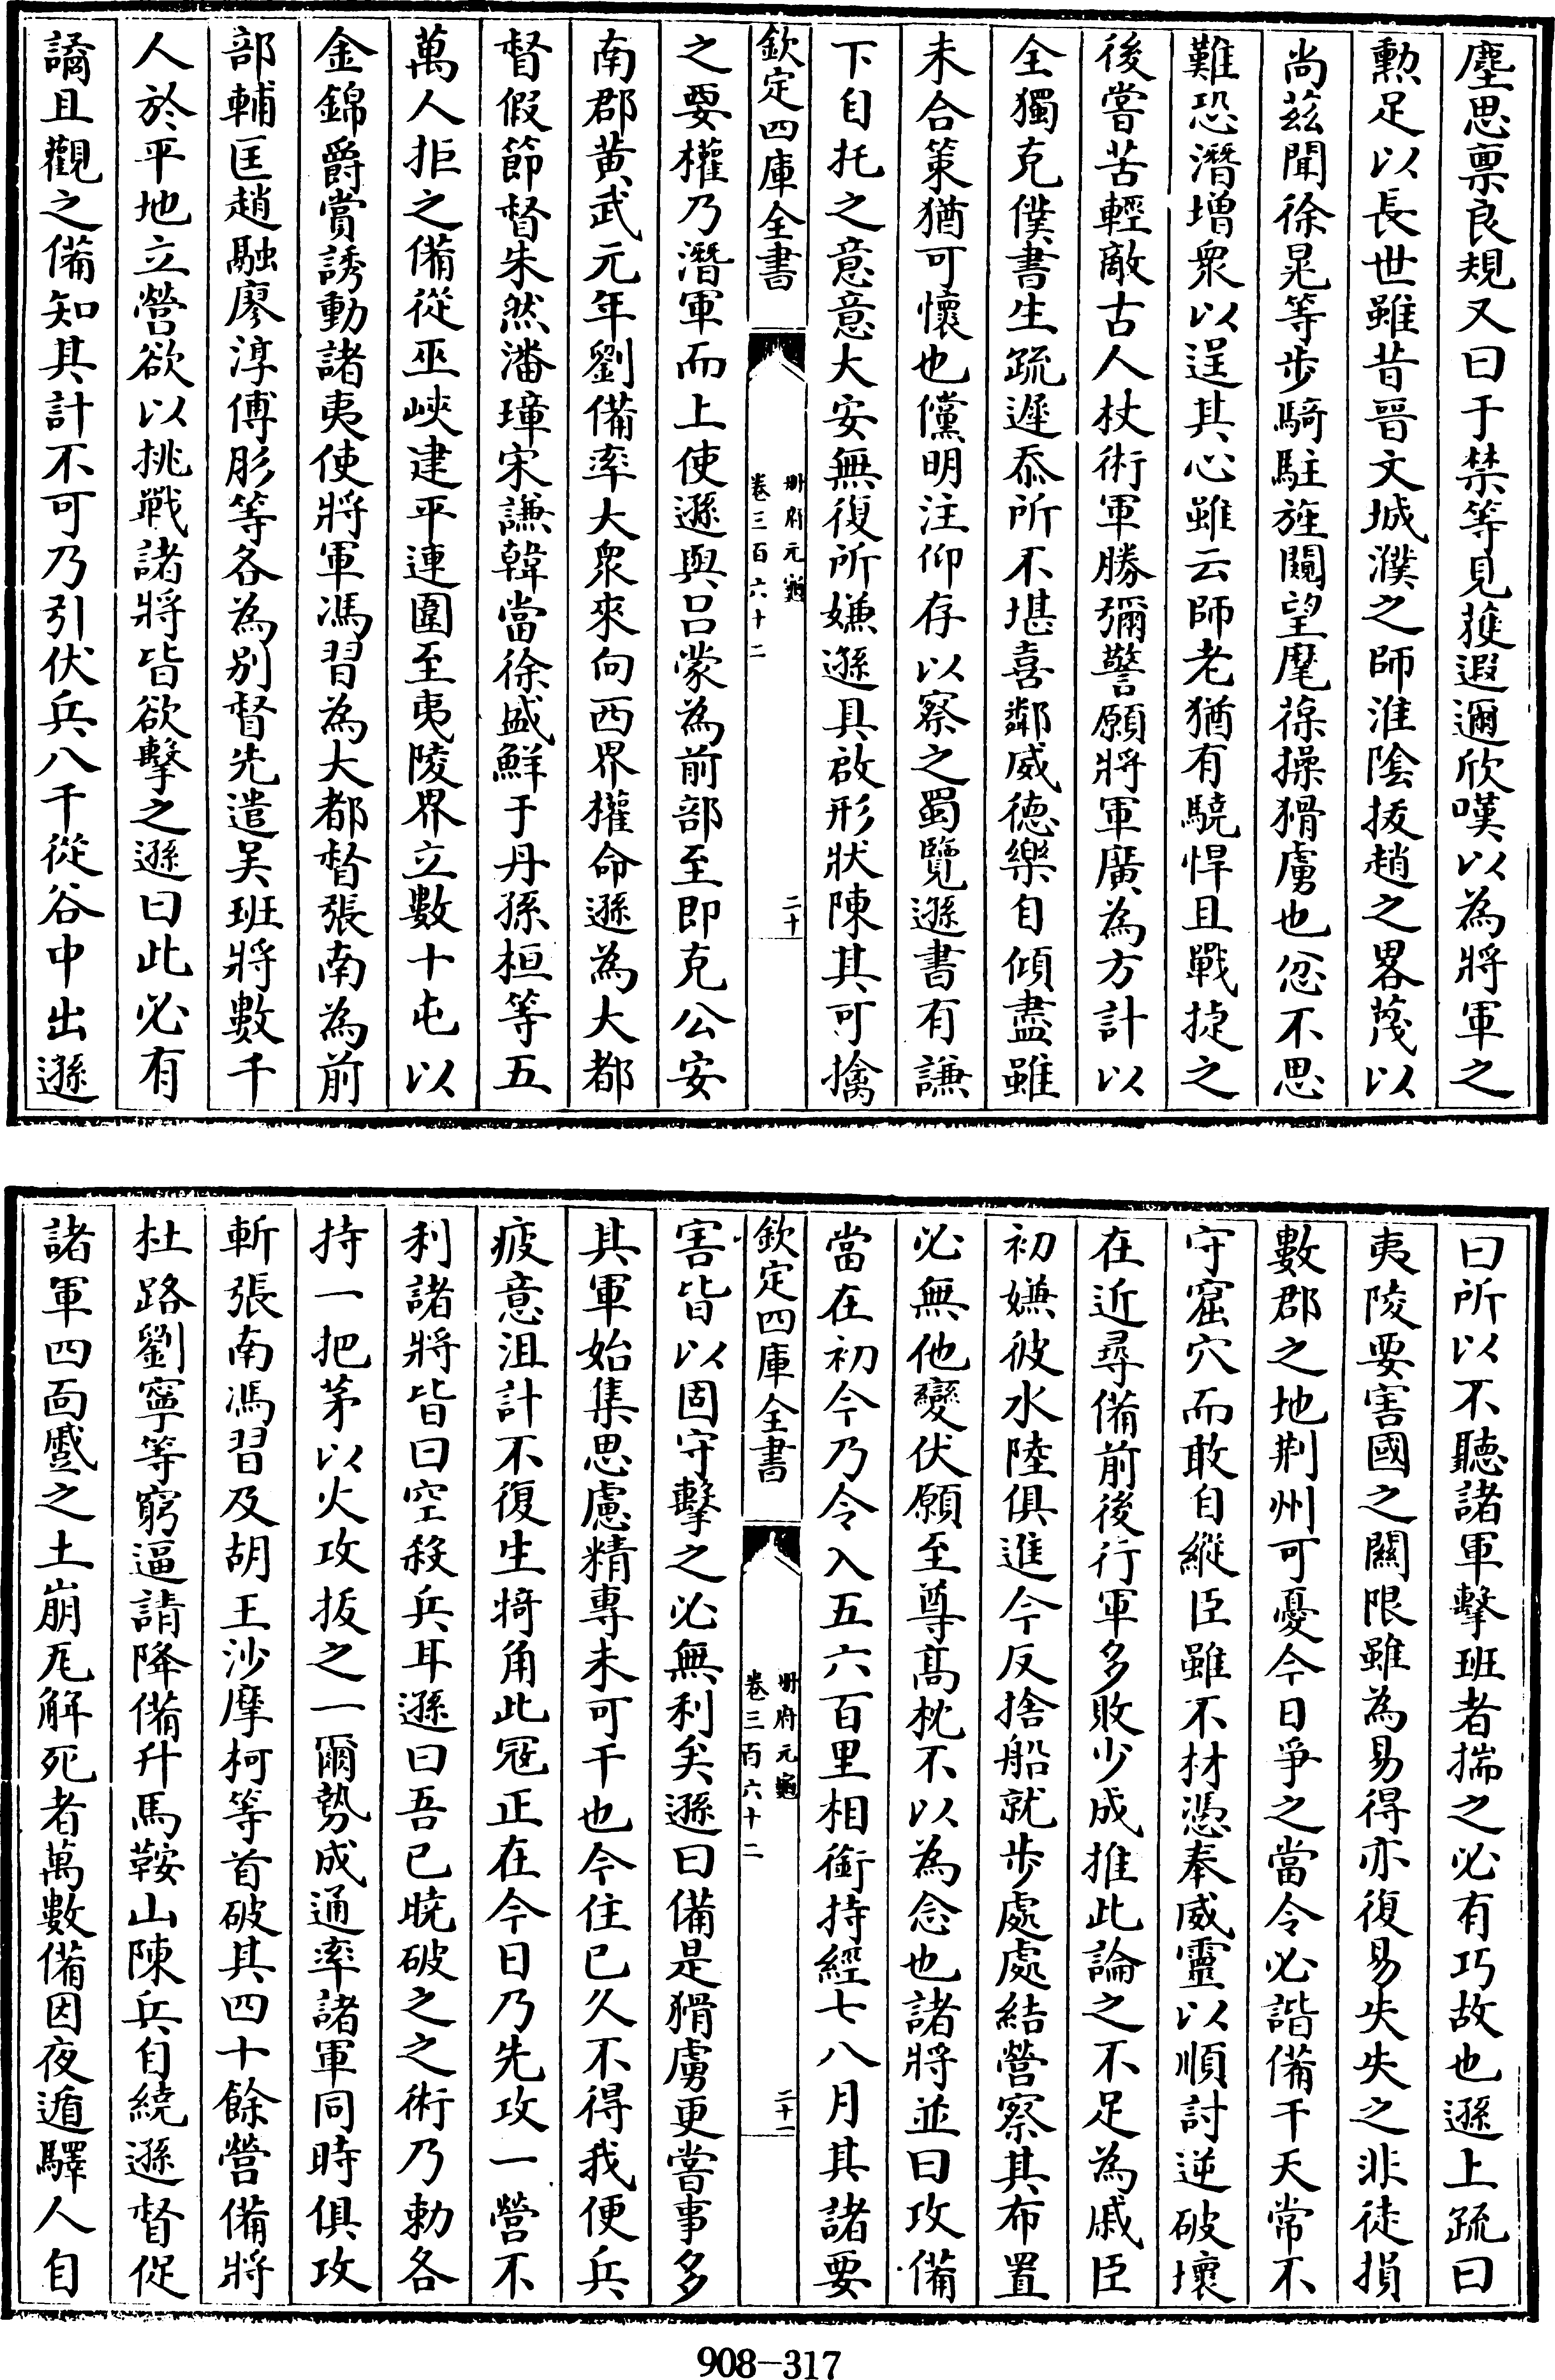 塵思禀良規又曰于禁等見獲遐邇欣嘆以為將軍之
勲足以長世雖昔晉文城濮之師淮隂拔趙之畧蔑以
尚兹聞徐晃等步騎駐旌闚望麾葆操猾虜也忿不思
難恐潛增衆以逞其心雖云師老猶有驍悍且戰捷之
後嘗苦輕敵古人杖術軍勝彌警願將軍廣為方計以
全獨克僕書生疏遲忝所不堪喜鄰威德樂自傾盡雖
未合策猶可懷也儻明注仰存以察之蜀覽遜書有謙
下自托之意意大安無復所嫌遜具啟形狀陳其可擒
欽定四庫全書
册府元龜
卷三百六十二
二十
之要權乃潛軍而上使遜與吕蒙為前部至即克公安
南郡黄武元年劉備率大衆來向西界權命遜為大都
督假節督朱然潘璋宋謙韓當徐盛鮮于丹孫桓等五
萬人拒之備從巫峽建平連圍至夷陵界立數十屯以
金錦爵賞誘動諸夷使將軍馮習為大都督張南為前
部輔匡趙融廖淳傅肜等各為别督先遣吴班將數千
人於平地立營欲以挑戰諸將皆欲擊之遜曰此必有
譎且觀之備知其計不可乃引伏兵八千從谷中出遜
曰所以不聽諸軍擊班者揣之必有巧故也遜上疏曰
夷陵要害國之關限雖為易得亦復易失失之非徒損
數郡之地荆州可憂今日爭之當令必諧備干天常不
守窟穴而敢自縱臣雖不材憑奉威靈以順討逆破壞
在近尋備前後行軍多敗少成推此論之不足為戚臣
初嫌彼水陸俱進今反捨船就步處處結營察其布置
必無他變伏願至尊髙枕不以為念也諸將並曰攻備
當在初今乃令入五六百里相銜持經七八月其諸要
欽定四庫全書
册府元龜
卷三百六十二
二十一
害皆以固守擊之必無利矣遜曰備是猾虜更嘗事多
其軍始集思慮精專未可干也今住已久不得我便兵
疲意沮計不復生犄角此冦正在今日乃先攻一營不
利諸將皆曰空殺兵耳遜曰吾已曉破之之術乃勅各
持一把茅以火攻拔之一爾勢成通率諸軍同時俱攻
斬張南馮習及胡王沙摩柯等首破其四十餘營備將
杜路劉寧等窮逼請降備升馬鞍山陳兵自繞遜督促
諸軍四面蹙之土崩瓦解死者萬數備因夜遁驛人自
908-317